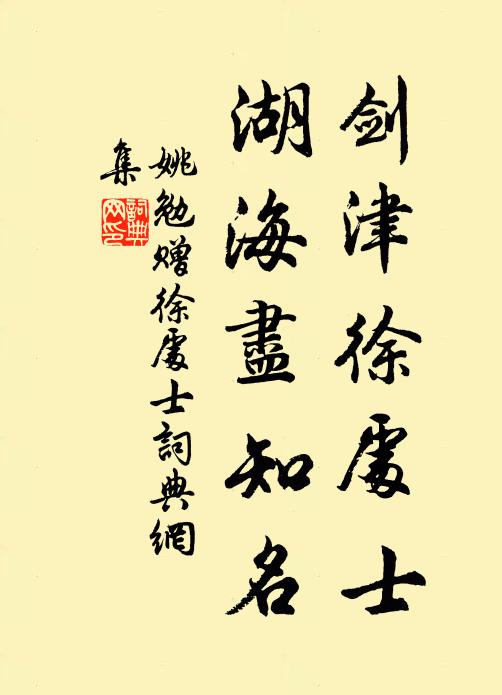 剑津徐處士
湖海盡知名
姚勉赠徐處士詞典網
集
詞典
网印